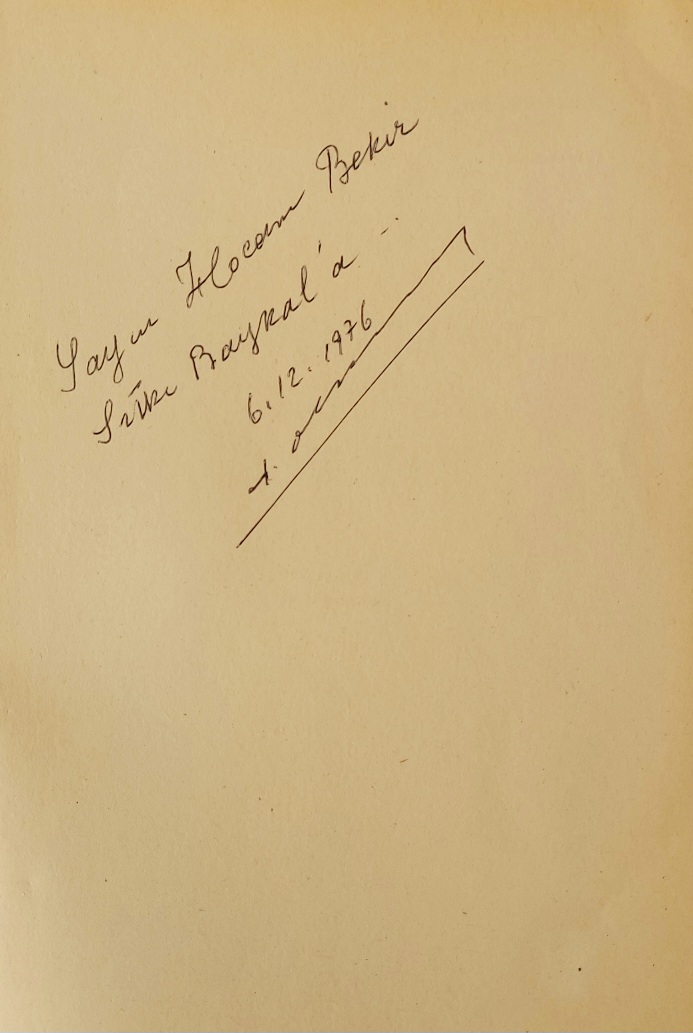 Sayın Hocam Bekir
Sıtkı Baykal'a ...
6.12.1976